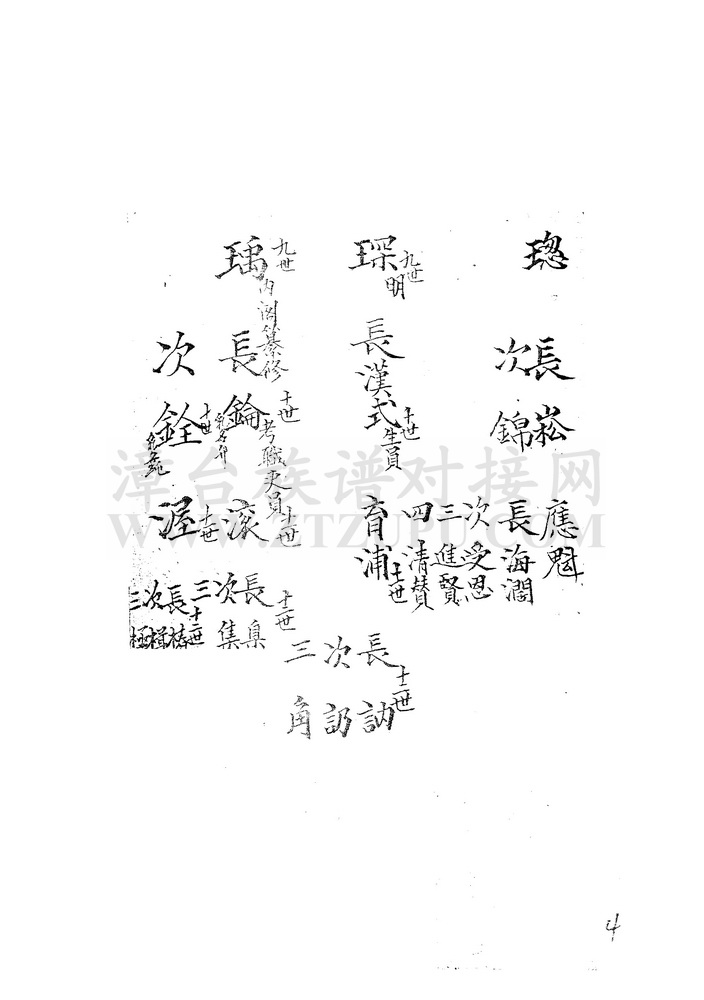 璁
長崧
次錦
應魁
長海濶
次受恩
三進賢
四清贊
琛
九世
明
長漢式
十世
生員
育浦
十一世
長訥
次訒
三角
十二世
瑀
九世
内閣纂修
長錀
十世
考職吏員
滚
十一世
長臯
次集
三
十二世
次銓
十世
渥
十一世
長椿
次楫
三極
十二世
漳台族谱对接网
WWW.ZTZUPU.COM
4